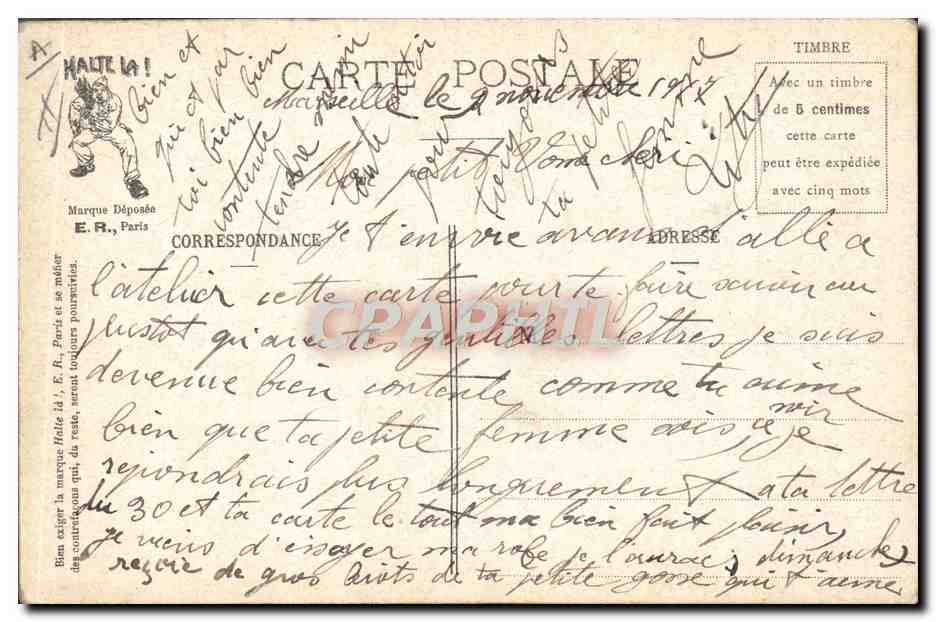 A
HALTE LA !
Marque Déposée
E. R., Paris
CARTE POSTALE
TIMBRE
Avec un timbre
de 5 centimes
cette carte
peut être expédiée
avec cinq mots
CORRESPONDANCE
ADRESSE
Bien exiger la marque Halte là !, E. R., Paris et se méfier
des contrefaçons qui, du reste, seront toujours poursuivies.
Marseille le 9 novembre 1917
Mon petit homme cheri
Je t'envoie avant d'allé a
l'atelier cette carte pour te faire savoir au
plustot qu'avec tes gentilles lettres je suis
devenue bien contente comme tu aime
bien que ta petite femme sois, ce soir je
rejondrais plus longuement a ta lettre
du 30 et ta carte le tout ma bien fait plaisir,
je viens d'essayer ma robe je l'aurai dimanche,
reçoie de gros bisots de ta petite gosse qui t'aime
bien et
qui est par
toi bien bien
contente
tendre
toute
pour
toujours
ta petite
femme
CPARTIL